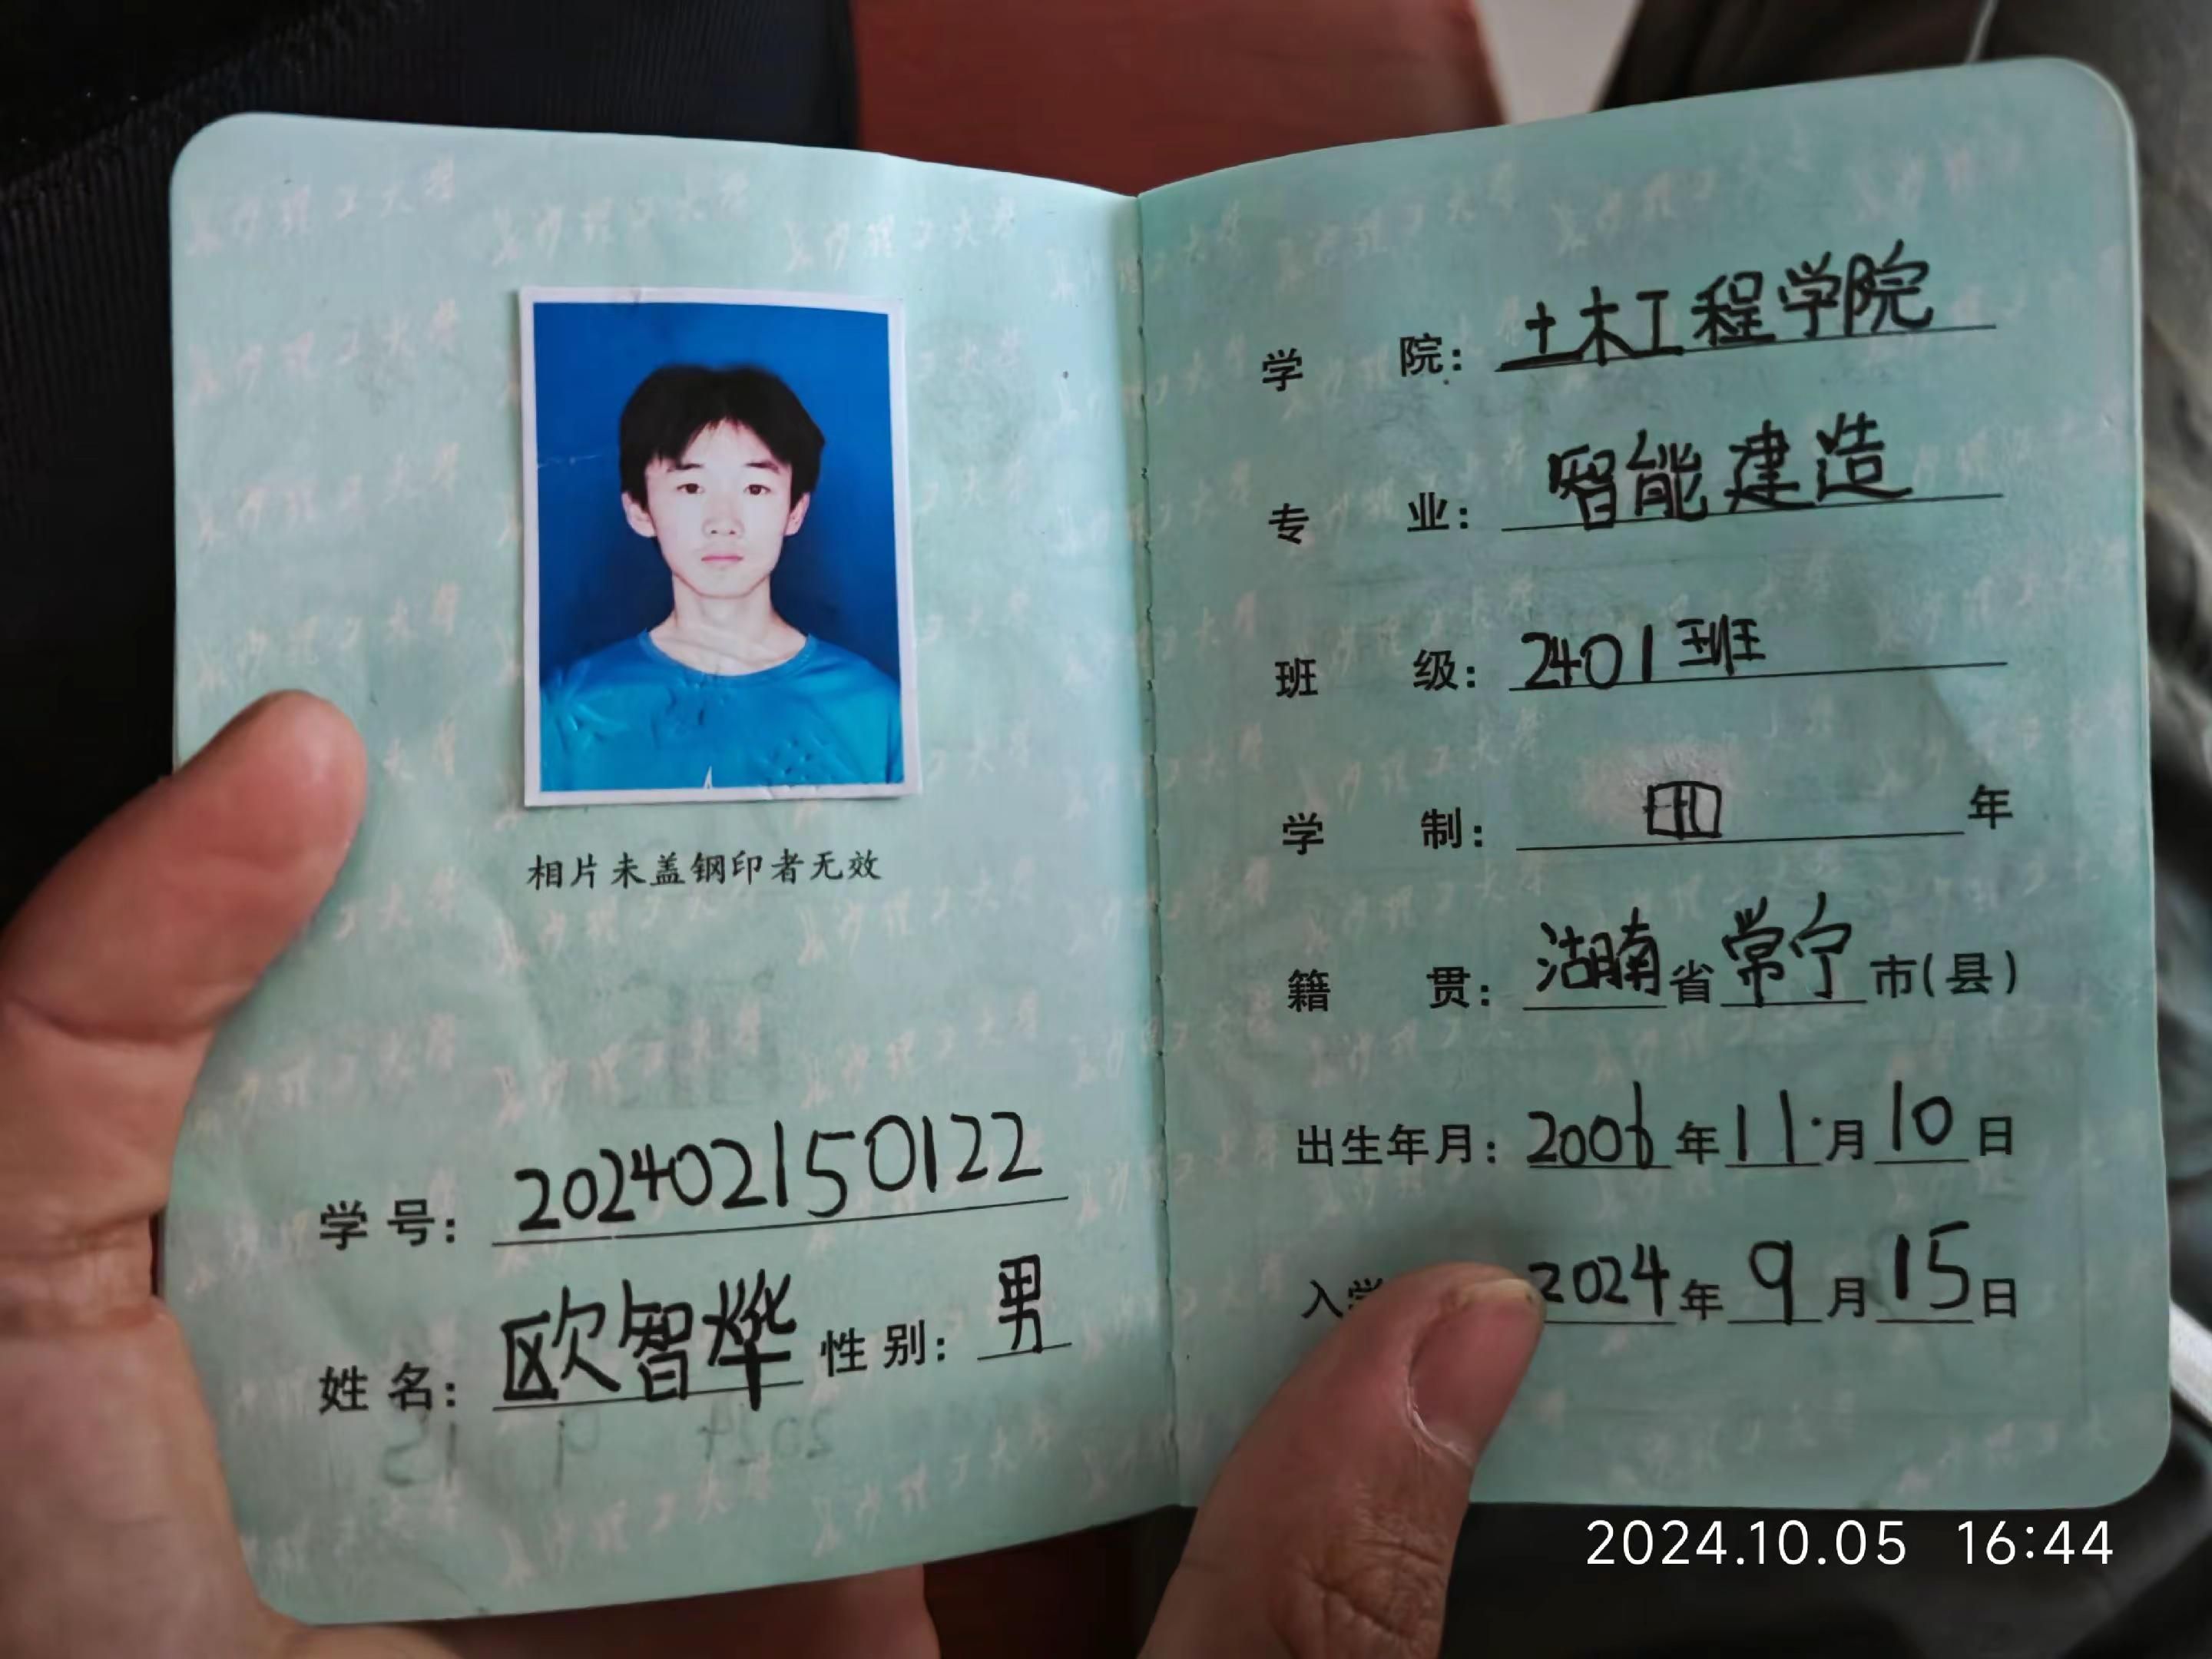 相片未盖钢印者无效
学号：202402150122
姓名：欧智烨 性别：男
学院：土木工程学院
专业：智能建造
班级：2401班
学制：四年
籍贯：湖南省常宁市(县)
出生年月：2006年11月10日
入学 2024年9月15日
2024.10.05 16:44